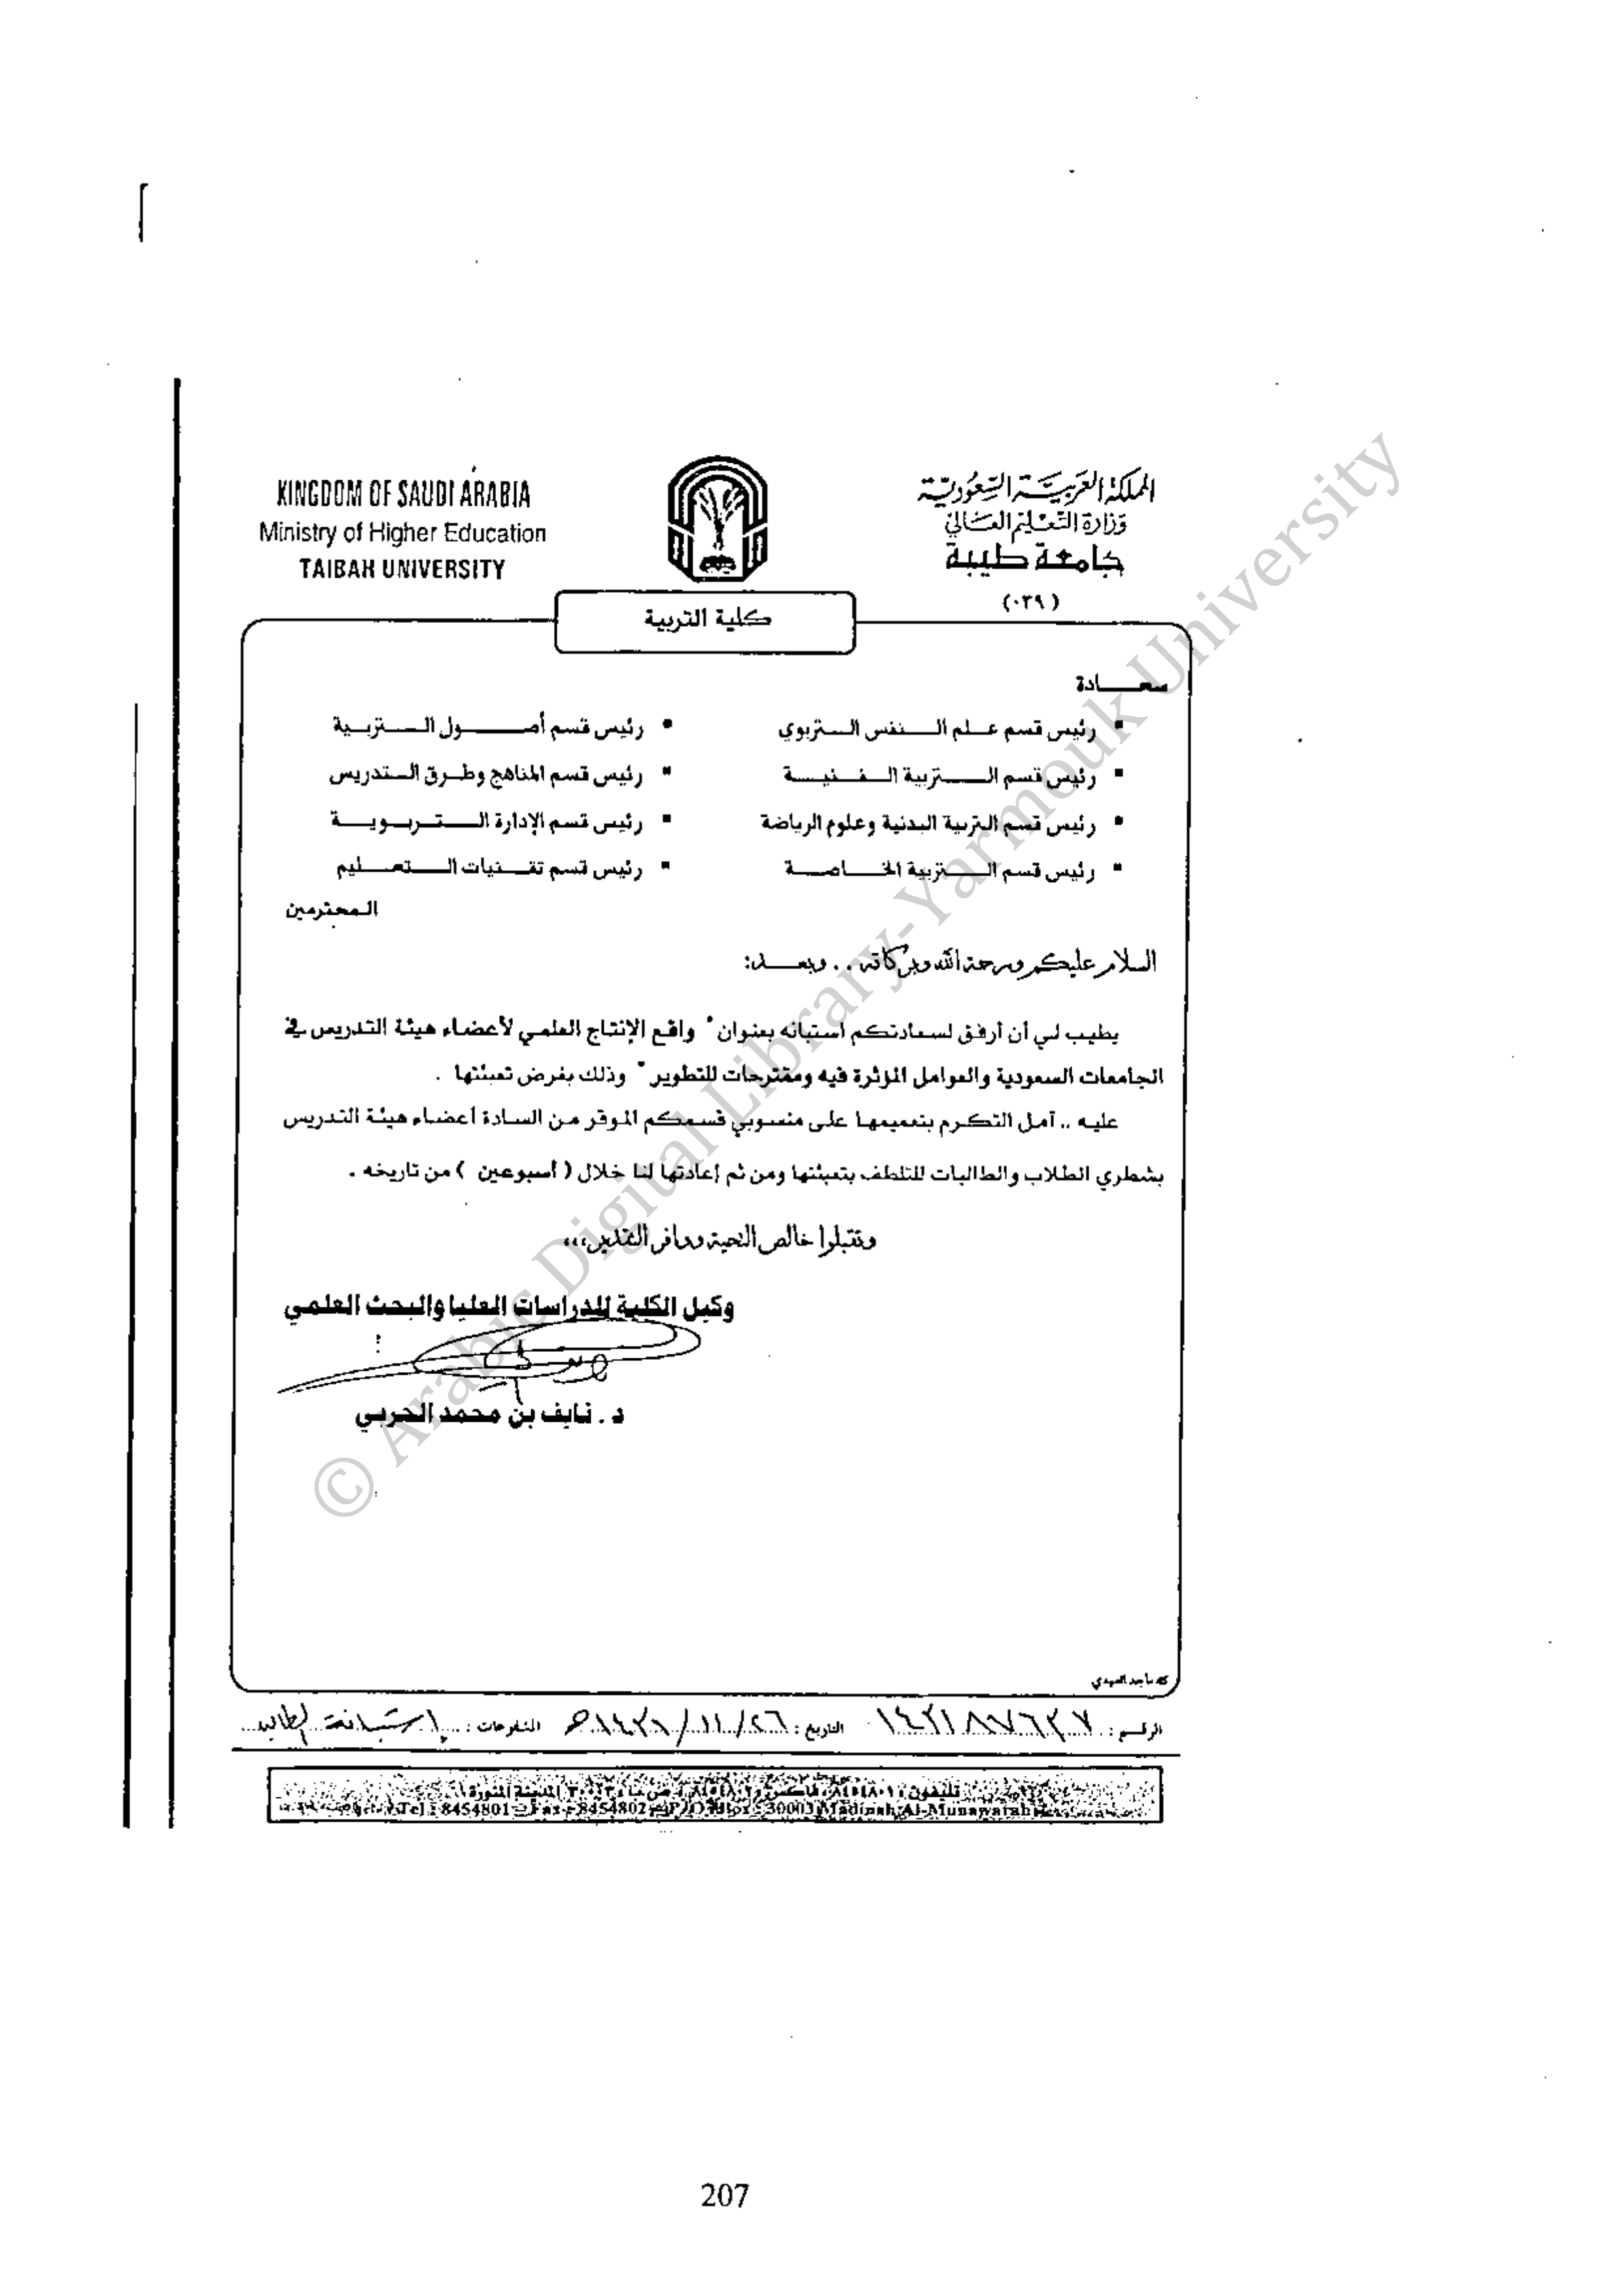 KINGDOM OF SAUDI ARABIA
Ministry of Higher Education
TAIBAH UNIVERSITY
المملكة العربية السعودية
وزارة التعليم العالي
جامعة طيبة
(٠٣٩)
كلية التربية
سعـــادة
▪ رئيس قسم علم النفس التربوي
▪ رئيس قسم أصول التربية
▪ رئيس قسم التربية الفنية
▪ رئيس قسم المناهج وطرق التدريس
▪ رئيس قسم التربية البدنية وعلوم الرياضة
▪ رئيس قسم الإدارة التربوية
▪ رئيس قسم التربية الخاصة
▪ رئيس قسم تقنيات التعليم
المحترمين
السلام عليكم ورحمة الله وبركاته .. وبعد:
يطيب لي أن أرفق لسعادتكم استبانه بعنوان " واقع الإنتاج العلمي لأعضاء هيئة التدريس في
الجامعات السعودية والعوامل المؤثرة فيه ومقترحات للتطوير " وذلك بغرض تعبئتها .
عليه .. آمل التكرم بتعميمها على منسوبي قسمكم الموقر من السادة أعضاء هيئة التدريس
بشطري الطلاب والطالبات للتلطف بتعبئتها ومن ثم إعادتها لنا خلال ( أسبوعين ) من تاريخه .
وتقبلوا خالص التحية ووافر التقدير،،،
وكيل الكلية للدراسات العليا والبحث العلمي
د . نايف بن محمد الحربي
الرقم: التاريخ: المشفوعات:
Tel : 8454801 Fax : 8454802 P.O Box : 30003 Madinah Al-Munawarah
© Arabic Digital Library-Yarmouk University
207